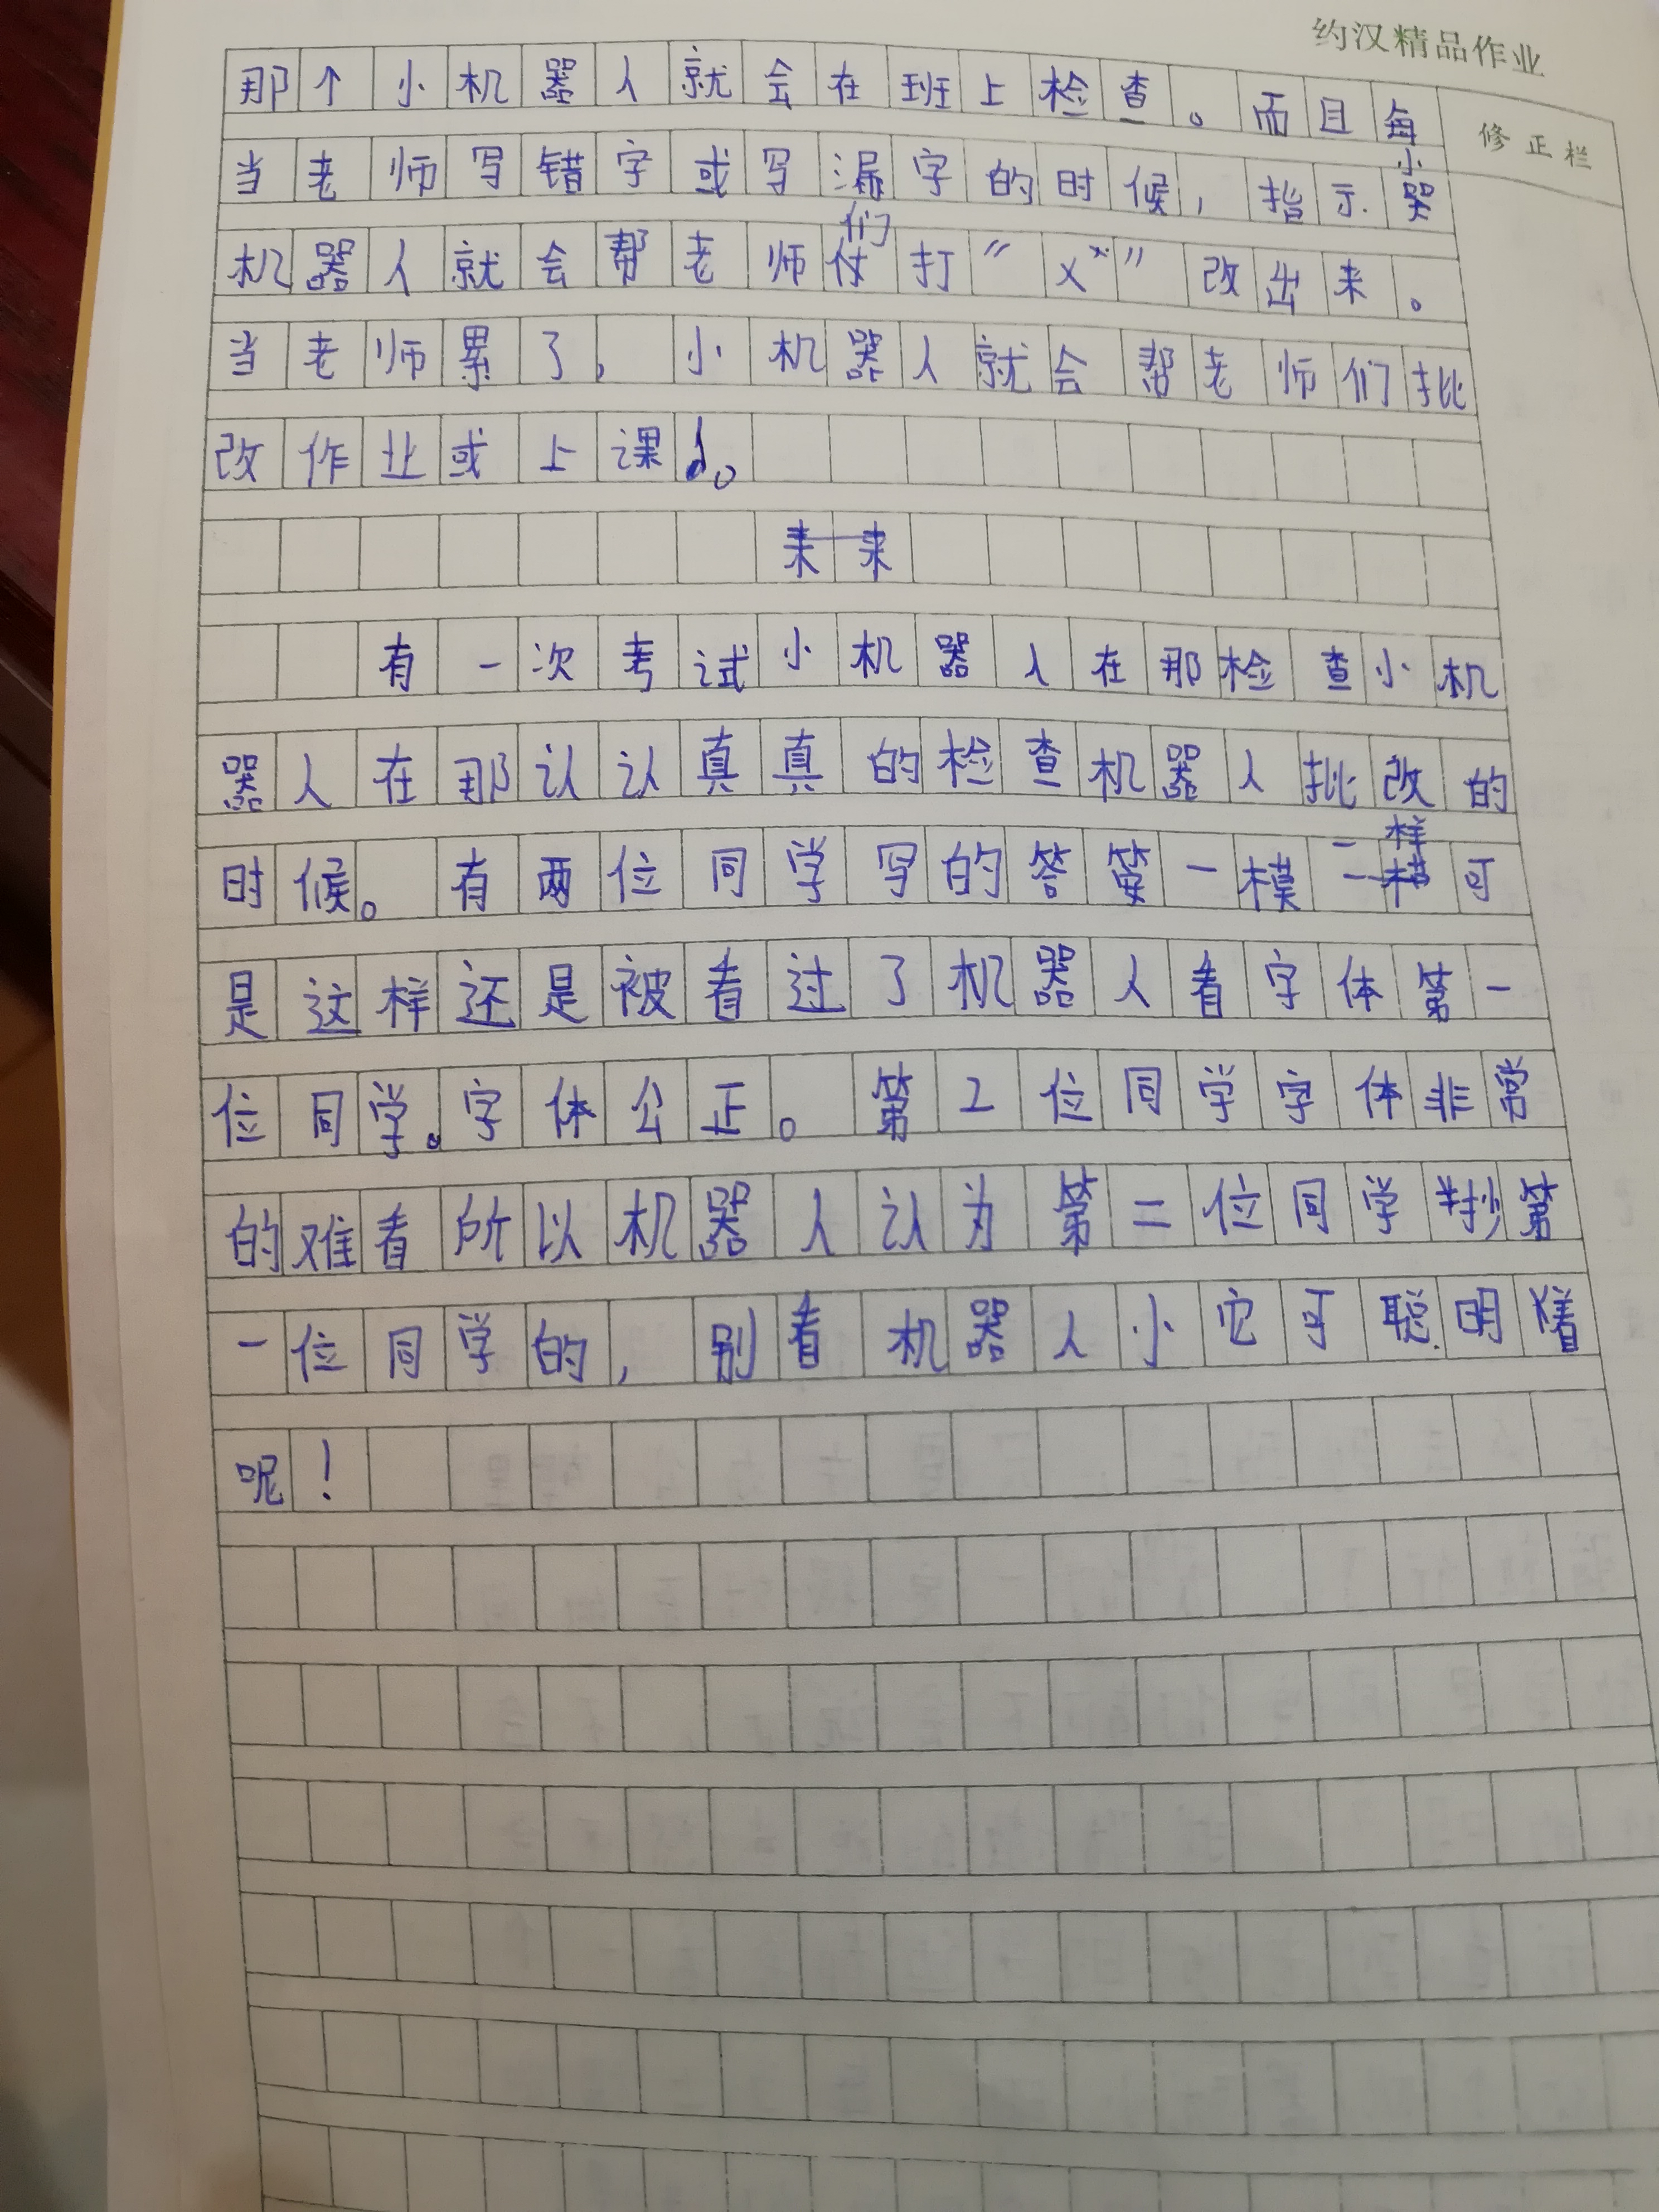 约汉精品作业
修正栏
那个小机器人就会在班上检查。而且每
当老师写错字或写漏字的时候，指示小
机器人就会帮老师们打“×”改出来。
当老师累了，小机器人就会帮老师们批
改作业或上课。
未来
有一次考试小机器人在那检查小机
器人在那认认真真的检查机器人批改的
时候。有两位同学写的答案一模一样可
是这样还是被看过了机器人看字体第一
位同学。字体公正。第2位同学字体非常
的难看所以机器人认为第二位同学抄第
一位同学的，别看机器人小它可聪明着
呢！